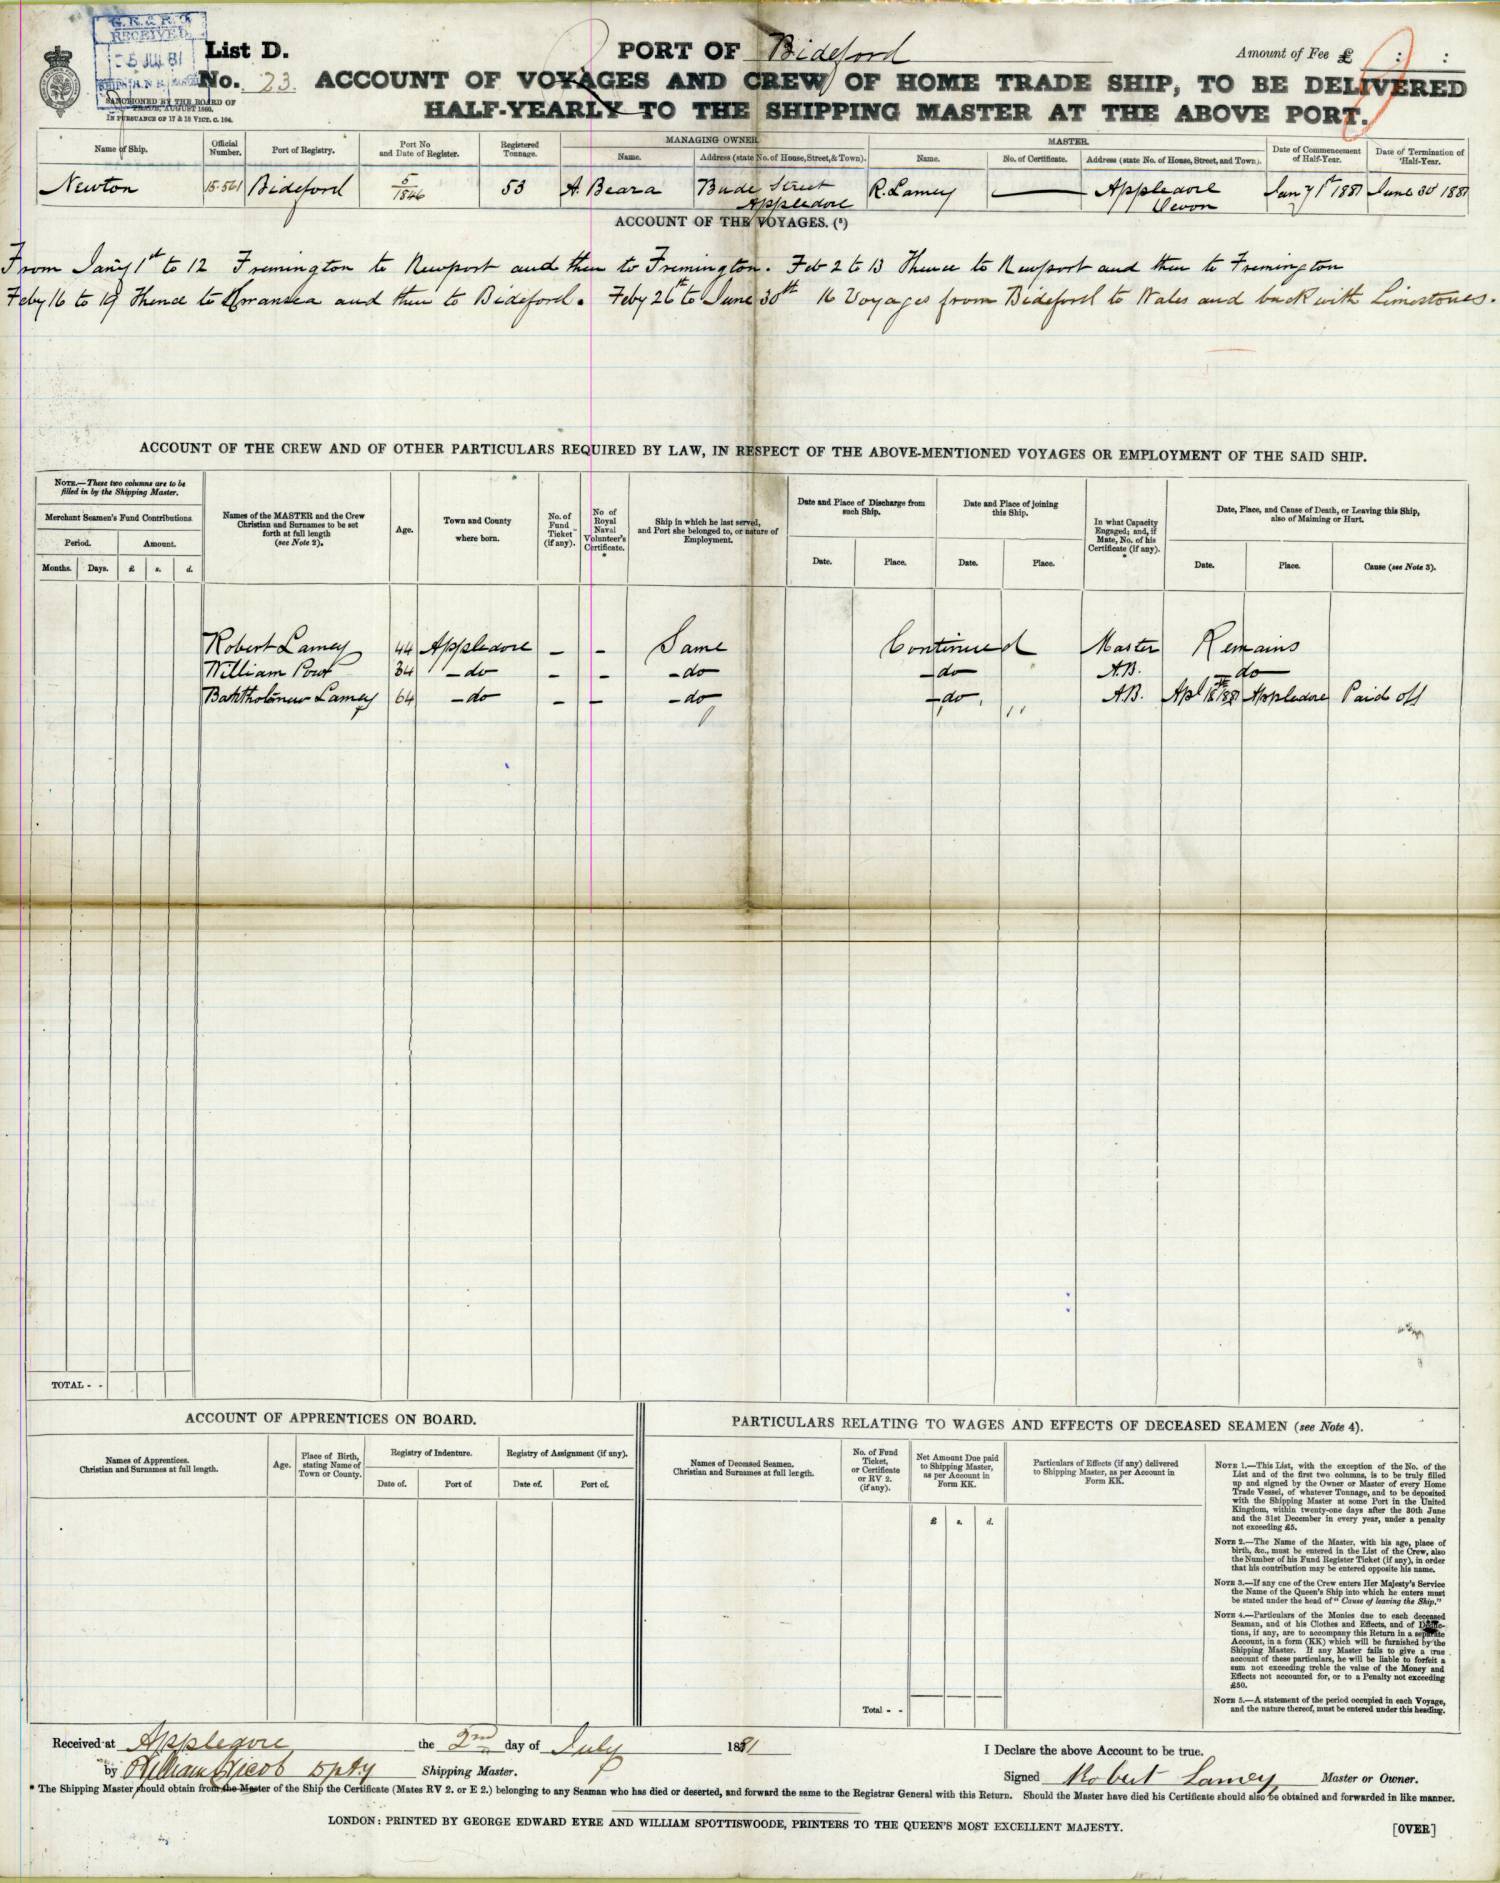 G.R. & R.O.
RECEIVED
5 JUL 81
List D. PORT OF Bideford Amount of Fee £ : :
No. 23. ACCOUNT OF VOYAGES AND CREW OF HOME TRADE SHIP, TO BE DELIVERED
SANCTIONED BY THE BOARD OF
TRADE, AUGUST 1860.
IN PURSUANCE OF 17 & 18 VICT. C. 104.
HALF-YEARLY TO THE SHIPPING MASTER AT THE ABOVE PORT.
Name of Ship. Official Number. Port of Registry. Port No and Date of Register. Registered Tonnage. MANAGING OWNER Name. Address (state No. of House, Street, & Town). MASTER. Name. No. of Certificate. Address (state No. of House, Street, and Town). Date of Commencement of Half-Year. Date of Termination of Half-Year.
Newton 15.561 Bideford 5/1846 53 A. Beara Bude Street Appledore R. Lamey — Appledore Devon Jany 1st 1881 June 30 1881
ACCOUNT OF THE VOYAGES. (5)
From Jany 1st to 12 Fremington to Newport and then to Fremington. Feb 2 to 13 Thence to Newport and then to Fremington
Feby 16 to 19 Thence to Swansea and then to Bideford. Feby 26th to June 30th 16 Voyages from Bideford to Wales and back with Limestones.
ACCOUNT OF THE CREW AND OF OTHER PARTICULARS REQUIRED BY LAW, IN RESPECT OF THE ABOVE-MENTIONED VOYAGES OR EMPLOYMENT OF THE SAID SHIP.
NOTE.—These two columns are to be filled in by the Shipping Master.
Merchant Seamen's Fund Contributions.
Period. Amount.
Months. Days. £ s. d.
Names of the MASTER and the Crew Christian and Surnames to be set forth at full length (see Note 2).
Age.
Town and County where born.
No. of Fund Ticket (if any).
No of Royal Naval Volunteer's Certificate. *
Ship in which he last served, and Port she belonged to, or nature of Employment.
Date and Place of Discharge from such Ship.
Date. Place.
Date and Place of joining this Ship.
Date. Place.
In what Capacity Engaged; and, if Mate, No. of his Certificate (if any). *
Date, Place, and Cause of Death, or Leaving this Ship, also of Maiming or Hurt.
Date. Place. Cause (see Note 3).
Robert Lamey 44 Appledore – – Same Continued Master Remains
William Pow 34 – do – – – do – do – A.B. – do –
Bartholomew Lamey 64 – do – – – do – do – ,, A.B. Apl 18th 1881 Appledore Paid off
TOTAL - -
ACCOUNT OF APPRENTICES ON BOARD.
Names of Apprentices. Christian and Surnames at full length.
Age.
Place of Birth, stating Name of Town or County.
Registry of Indenture.
Date of. Port of.
Registry of Assignment (if any).
Date of. Port of.
PARTICULARS RELATING TO WAGES AND EFFECTS OF DECEASED SEAMEN (see Note 4).
Names of Deceased Seamen. Christian and Surnames at full length.
No. of Fund Ticket, or Certificate or RV 2. (if any).
Net Amount Due paid to Shipping Master, as per Account in Form KK.
£ s. d.
Particulars of Effects (if any) delivered to Shipping Master, as per Account in Form KK.
Total - -
NOTE 1.—This List, with the exception of the No. of the
List and of the first two columns, is to be truly filled
up and signed by the Owner or Master of every Home
Trade Vessel, of whatever Tonnage, and to be deposited
with the Shipping Master at some Port in the United
Kingdom, within twenty-one days after the 30th June
and the 31st December in every year, under a penalty
not exceeding £5.
NOTE 2.—The Name of the Master, with his age, place of
birth, &c., must be entered in the List of the Crew, also
the Number of his Fund Register Ticket (if any), in order
that his contribution may be entered opposite his name.
NOTE 3.—If any one of the Crew enters Her Majesty's Service
the Name of the Queen's Ship into which he enters must
be stated under the head of "Cause of leaving the Ship."
NOTE 4.—Particulars of the Monies due to each deceased
Seaman, and of his Clothes and Effects, and of Deduc-
tions, if any, are to accompany this Return in a separate
Account, in a form (KK) which will be furnished by the
Shipping Master. If any Master fails to give a true
account of these particulars, he will be liable to forfeit a
sum not exceeding treble the value of the Money and
Effects not accounted for, or to a Penalty not exceeding
£50.
NOTE 5.—A statement of the period occupied in each Voyage,
and the nature thereof, must be entered under this heading.
Received at Appledore the 2nd day of July 1881
I Declare the above Account to be true.
by William Jicob Dpty Shipping Master.
Signed Robert Lamey Master or Owner.
* The Shipping Master should obtain from the Master of the Ship the Certificate (Mates RV 2. or E 2.) belonging to any Seaman who has died or deserted, and forward the same to the Registrar General with this Return. Should the Master have died his Certificate should also be obtained and forwarded in like manner.
LONDON: PRINTED BY GEORGE EDWARD EYRE AND WILLIAM SPOTTISWOODE, PRINTERS TO THE QUEEN'S MOST EXCELLENT MAJESTY.
[OVER]